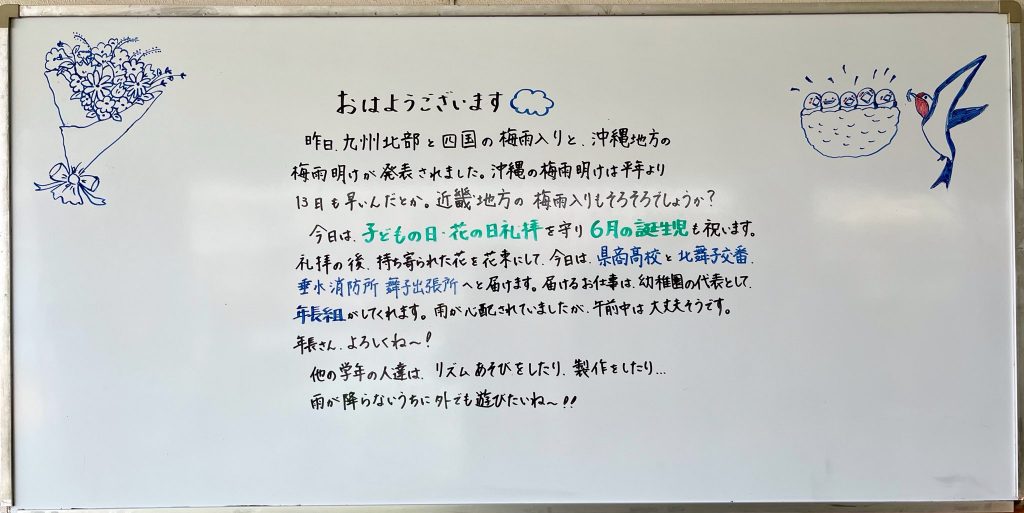 おはようございます
昨日、九州北部と四国の梅雨入りと、沖縄地方の
梅雨明けが発表されました。沖縄の梅雨明けは平年より
13日も早いんだとか。近畿地方の梅雨入りもそろそろでしょうか?
今日は、子どもの日・花の日礼拝を守り6月の誕生児も祝います。
礼拝の後、持ち寄られた花を花束にして、今日は、県商高校と北舞子交番、
垂水消防所 舞子出張所へと届けます。届けるお仕事は、幼稚園の代表として、
年長組がしてくれます。雨が心配されていましたが、午前中は大丈夫そうです。
年長さん、よろしくね〜!
他の学年の人達は、リズムあそびをしたり、製作をしたり…
雨が降らないうちに外でも遊びたいね〜!!